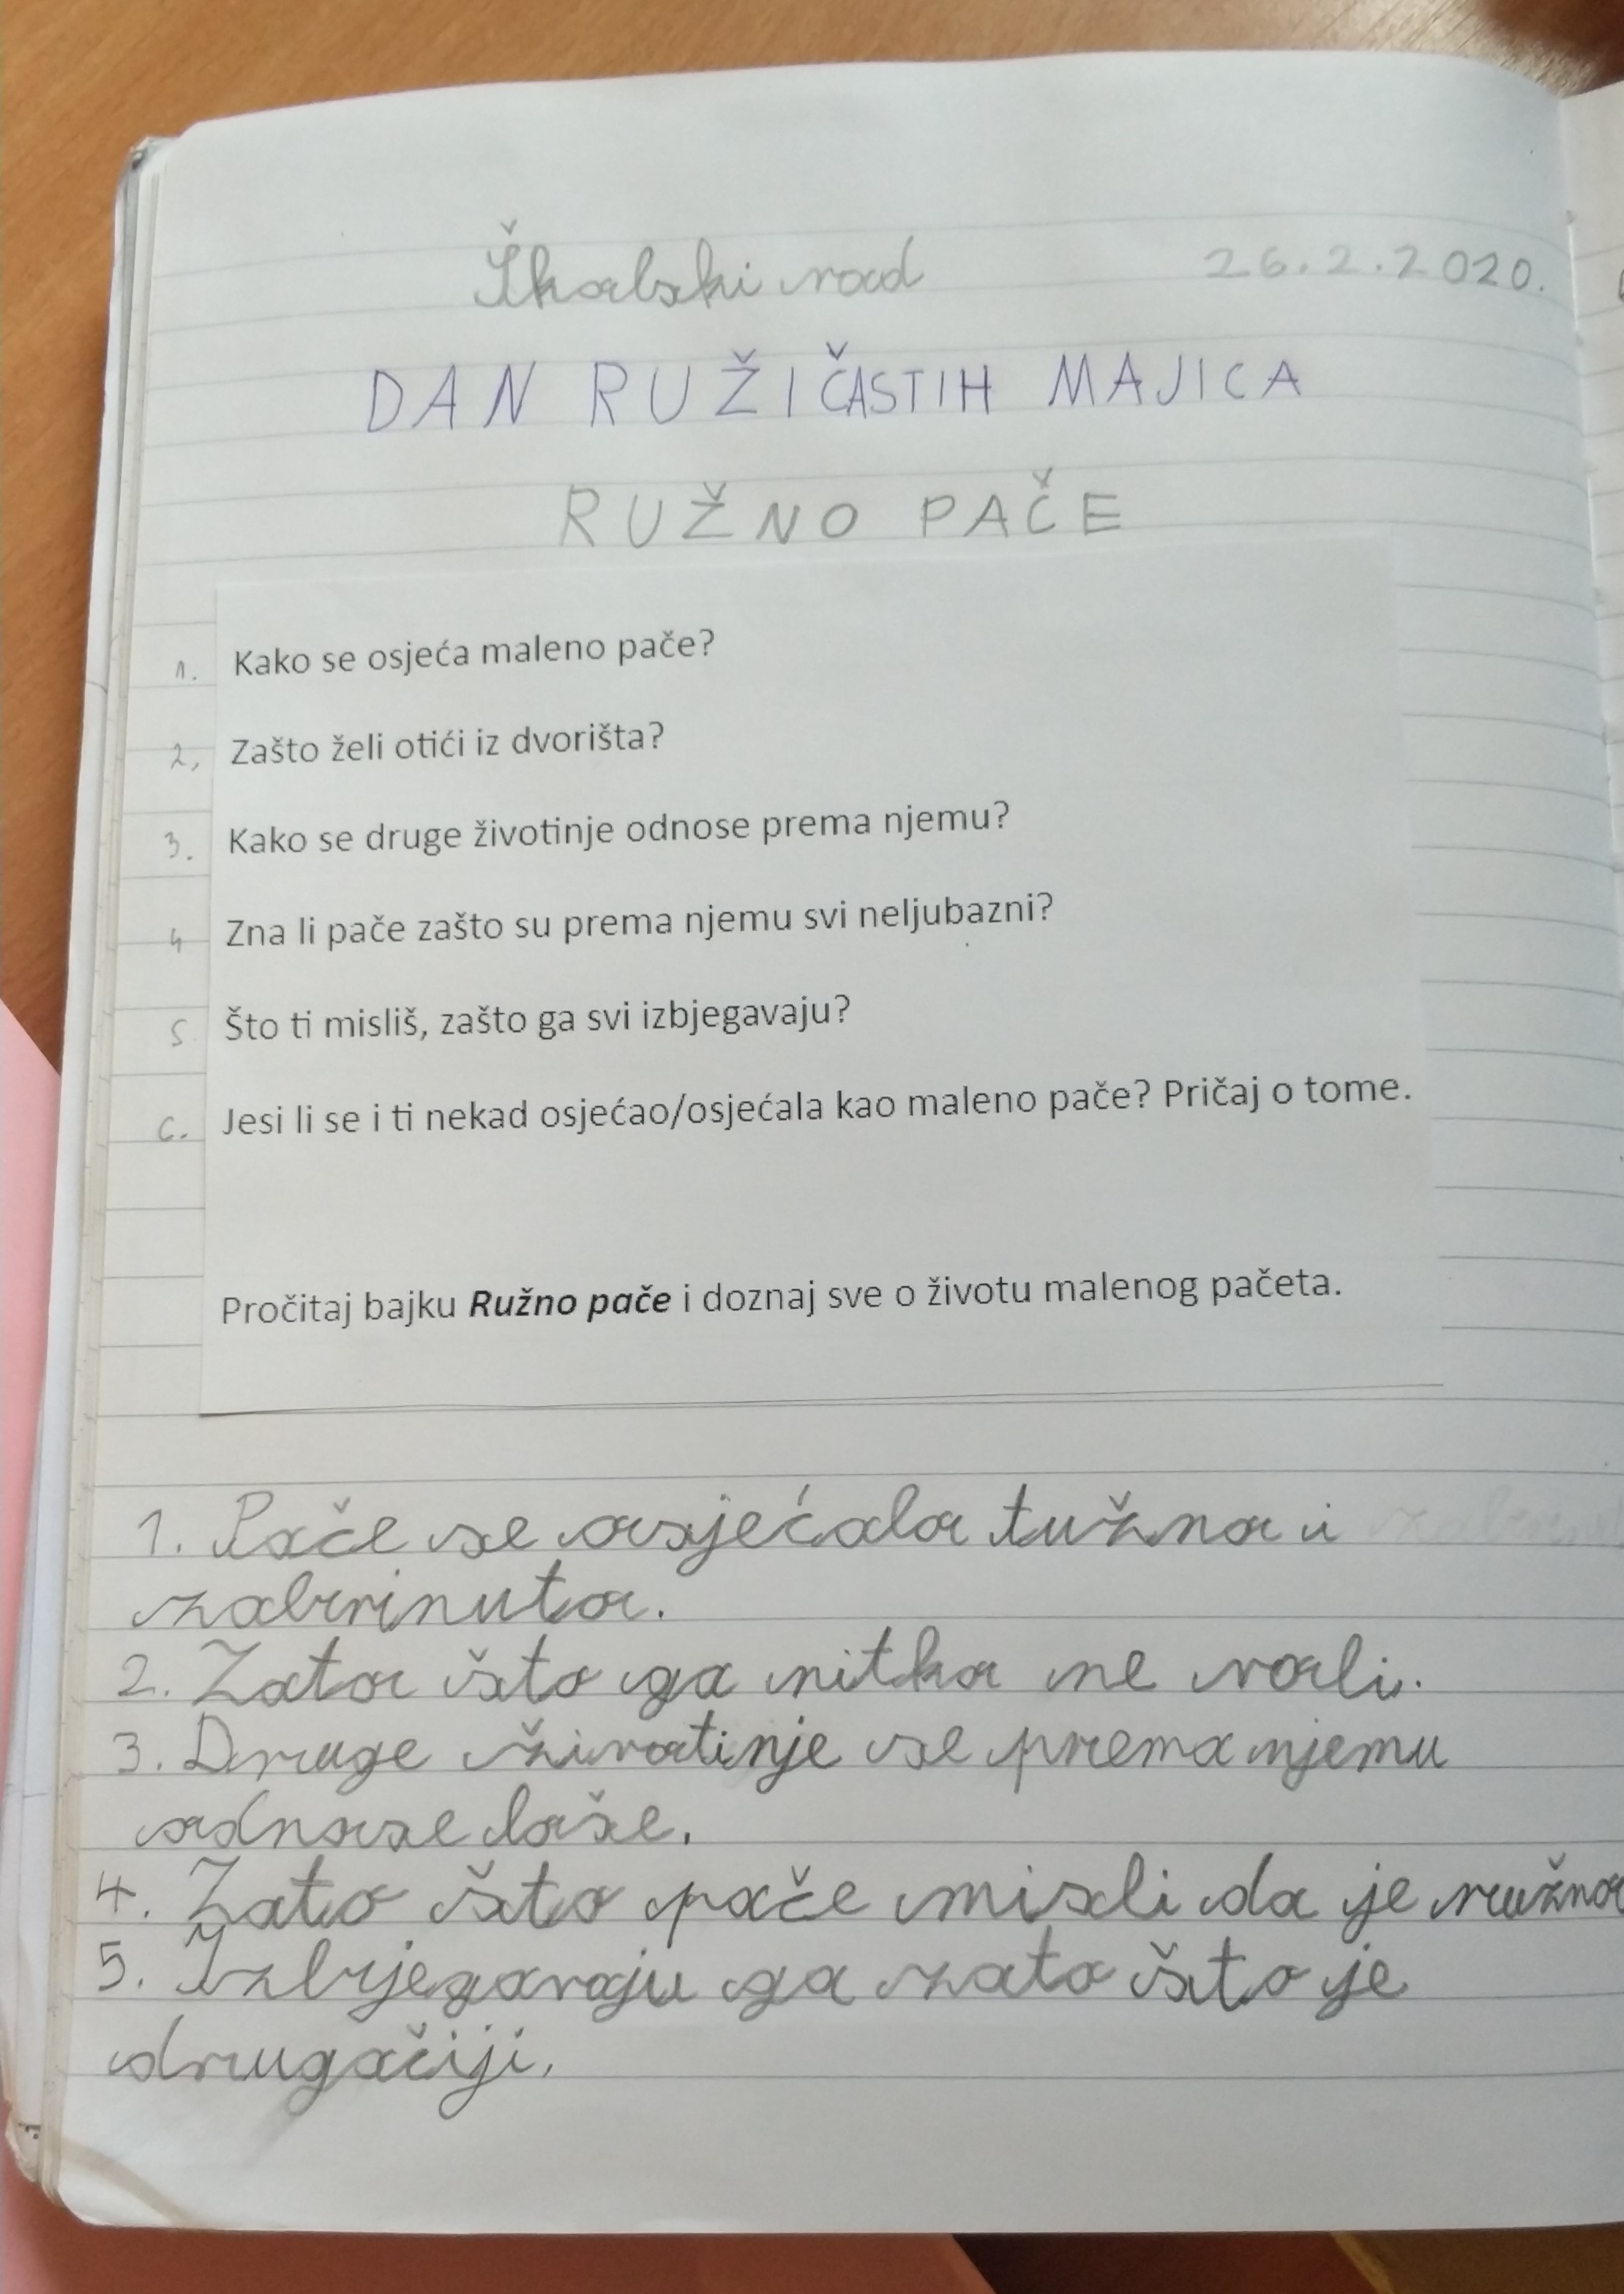 Školski rad 26.2.2020.
DAN RUŽIČASTIH MAJICA
RUŽNO PAČE
1. Kako se osjeća maleno pače?
2, Zašto želi otići iz dvorišta?
3. Kako se druge životinje odnose prema njemu?
4 Zna li pače zašto su prema njemu svi neljubazni?
5. Što ti misliš, zašto ga svi izbjegavaju?
6. Jesi li se i ti nekad osjećao/osjećala kao maleno pače? Pričaj o tome.
Pročitaj bajku Ružno pače i doznaj sve o životu malenog pačeta.
1. Pače se osjećalo tužno i
zabrinuto.
2. Zato što ga nitko ne voli.
3. Druge životinje se prema njemu
odnose loše.
4. Zato što pače misli da je ružno
5. Izbjegavaju ga zato što je
drugačiji.